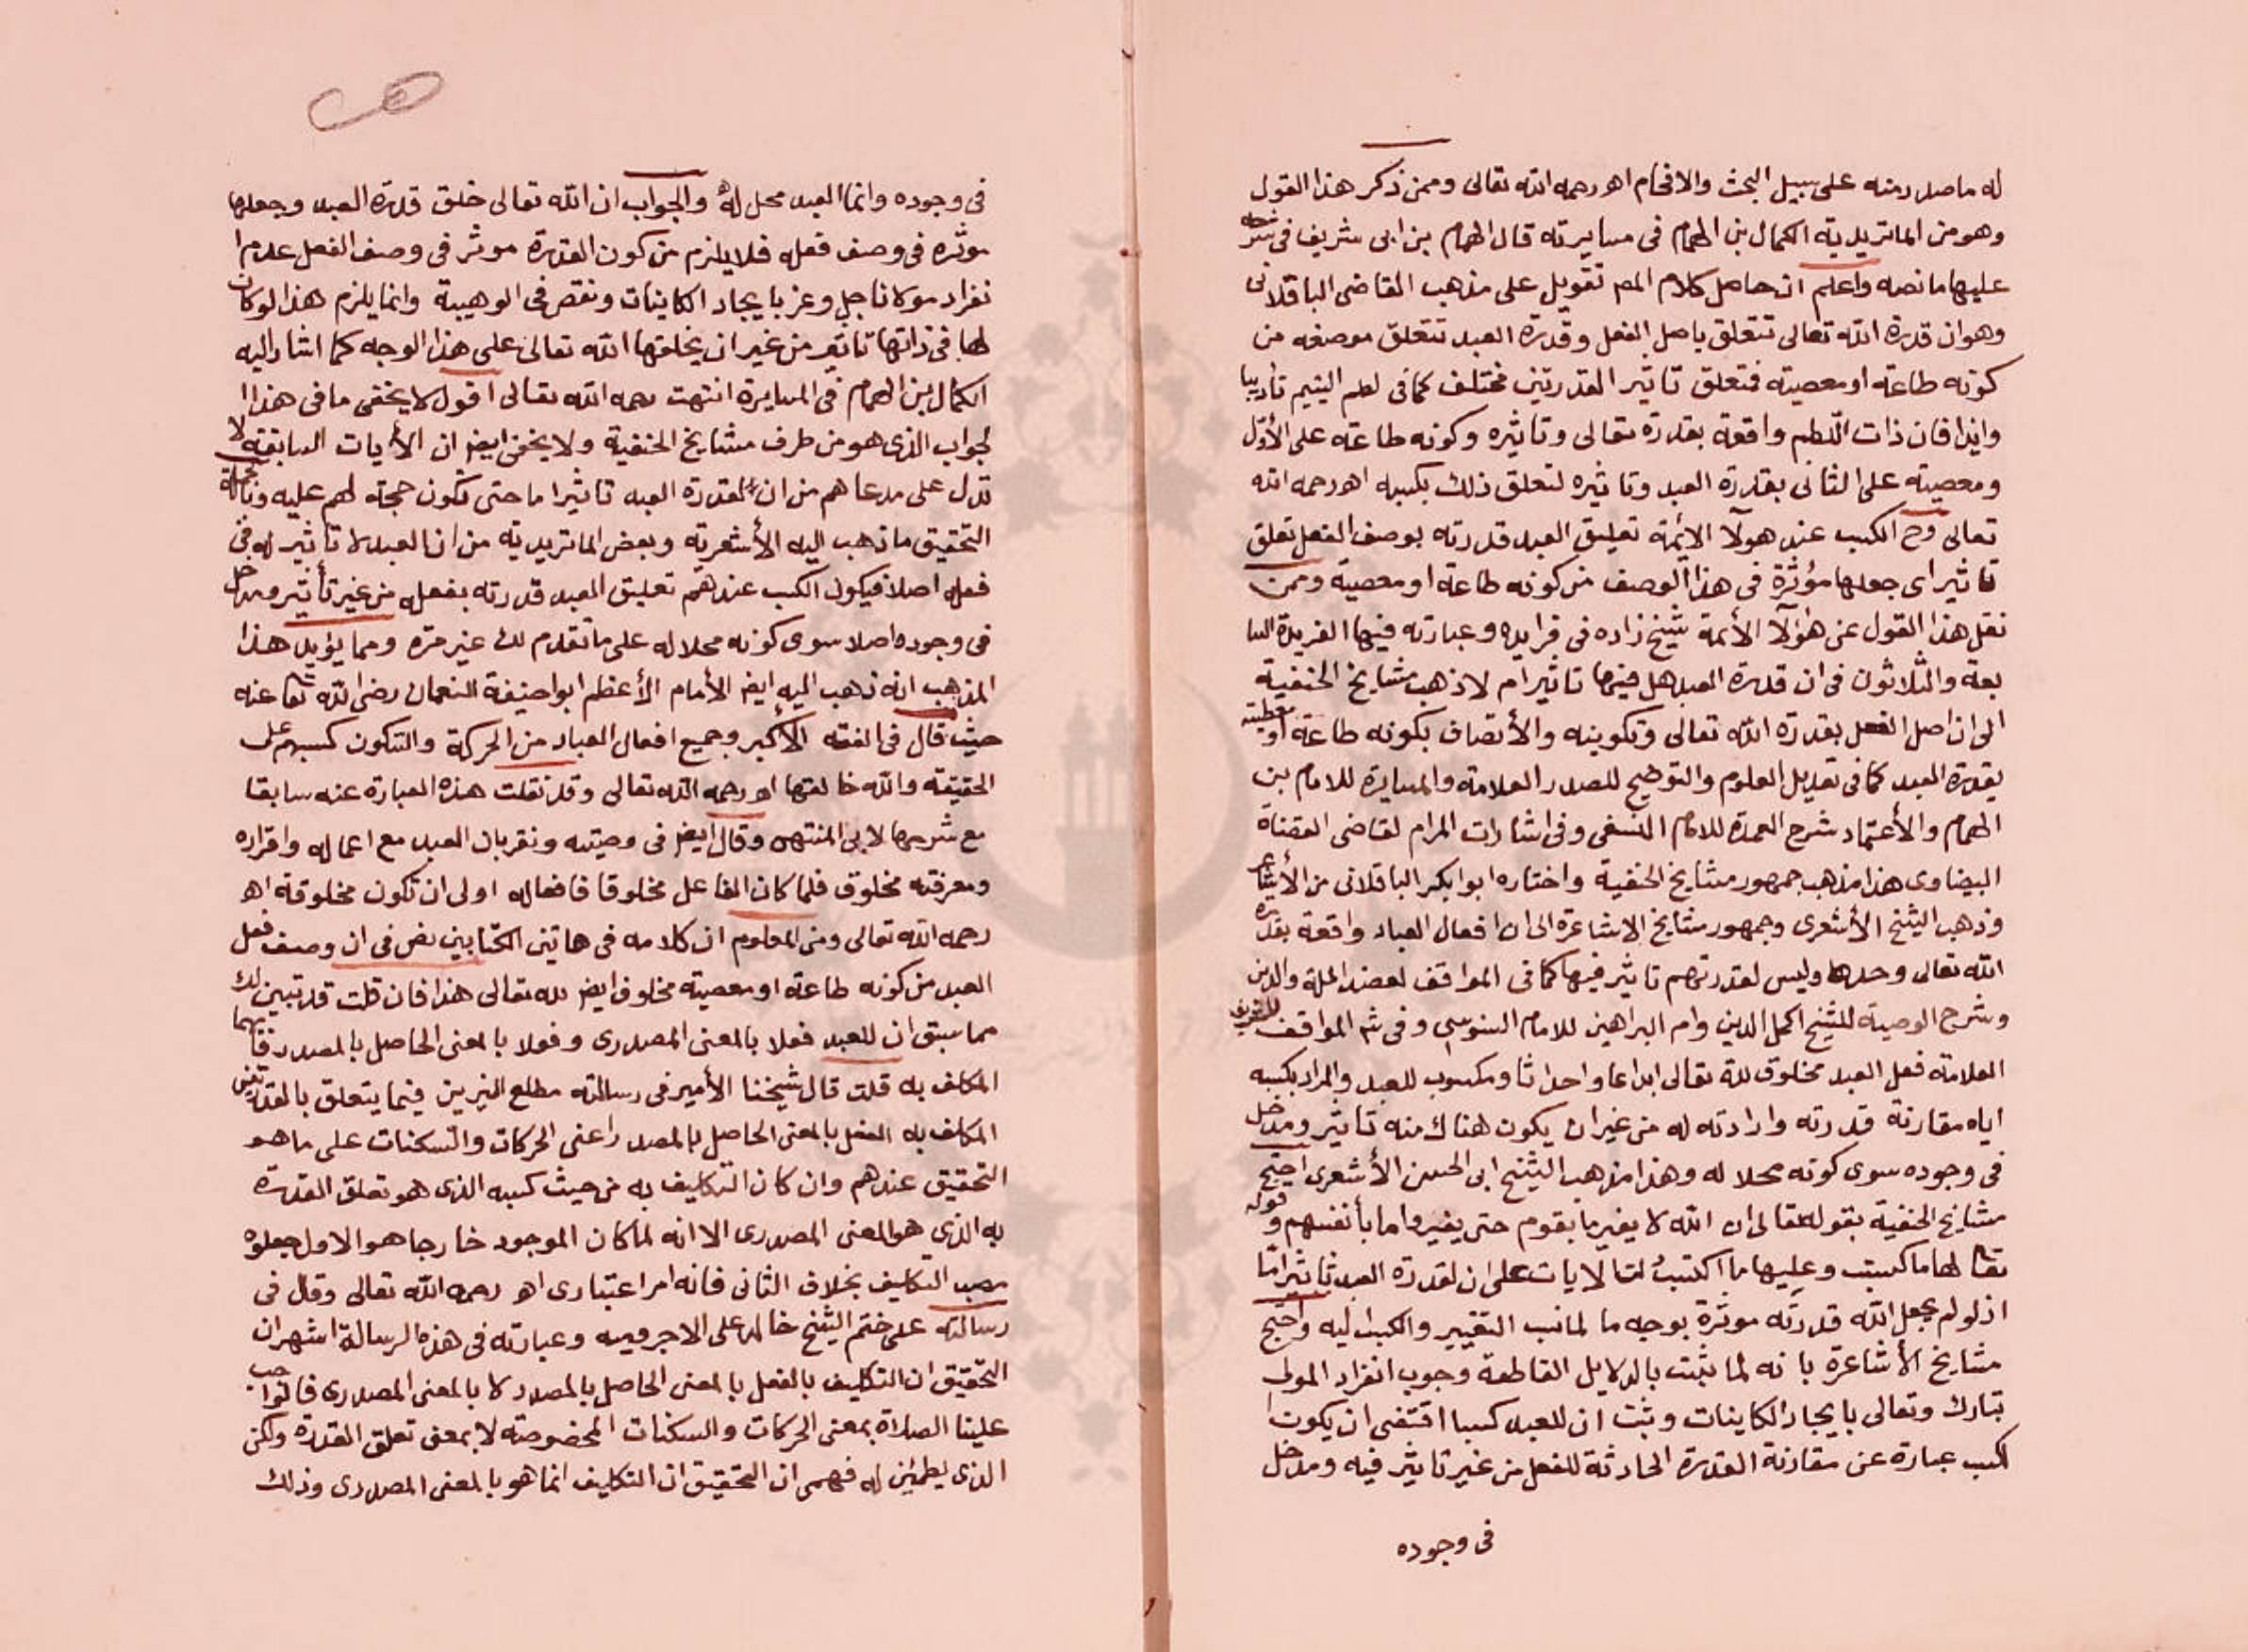 له ما صدر منه على سبيل البحث والافحام اهـ رحمه الله تعالى وممن ذكر هذا القول
وهو من الماتريدية الكمال بن الهمام في مسايرته قال الهمام بن ابى شريف في شرحه
عليها ما نصه واعلم ان حاصل كلام المص تعويل على مذهب القاضى الباقلانى
وهو ان قدرة الله تعالى تتعلق باصل الفعل وقدرة العبد تتعلق بوصفه من
كونه طاعة او معصية فتعلق تاثير القدرتين مختلف كما فى لطم اليتيم تأديبا
وايذا فان ذات اللطم واقعة بقدرة تعالى وتاثيره وكونه طاعة على الأول
ومعصية على الثانى بقدرة العبد وتاثيره لتعلق ذلك بكسبه اهـ رحمه الله
تعالى وح الكسب عند هولآ الائمة تعليق العبد قدرته بوصف الفعل تعلق
تاثير اى جعلها مؤثرة فى هذا الوصف من كونه طاعة او معصية وممن
نقل هذا القول عن هؤلآ الأئمة شيخ زاده فى فرايده وعبارته فيها الفريدة السا
بعة والثلاثون فى ان قدرة العبد هل فيها تاثير ام لا ذهب مشايخ الحنفية
الى ان اصل الفعل بقدرة الله تعالى وتكوينه والأتصاف بكونه طاعة او معصية
بقدرة العبد كما فى تعديل العلوم والتوضيح للصدر العلامة والمسايرة للامام بن
الهمام والأعتماد شرح العمدة للامام النسفى وفى اشارات المرام لقاضى القضاة
البيضاوى هذا مذهب جمهور مشايخ الحنفية واختاره ابو ابكر الباقلانى من الأشاعرة
وذهب الشيخ الأشعرى وجمهور مشايخ الاشاعرة الى ان افعال العباد واقعة بقدرة
الله تعالى وحدها وليس لقدرتهم تاثير فيها كما فى المواقف لعضد الملة والدين
وشرح الوصية للشيخ اكمل الدين وام البراهين للامام السنوسى وفى شـ المواقف للشريف
العلامة فعل العبد مخلوق لله تعالى ابداعا واحداثا ومكسوب للعبد والمراد بكسبه
اياه مقارنة قدرته وارادته له من غير ان يكون هناك منه تاثير ومدخل
فى وجوده سوى كونه محلا له وهذا مذهب الشيخ ابى الحسن الأشعرى احتج
مشايخ الحنفية بقوله تعالى ان الله لا يغير ما بقوم حتى يغيروا ما بأنفسهم وقوله
تعا لها ما كسبت وعليها ما اكتسبت الايات على ان لقدرة العبد تاثيرا ما
اذ لو لم يجعل الله قدرته موثرة بوجه ما لما نسب التغيير والكسب اليه واحتج
مشايخ الأشاعرة بانه لما ثبت بالدلايل القاطعة وجوب انفراد المولى
تبارك وتعالى بايجاد الكاينات وثبت ان للعبد كسبا اقتضى ان يكون ا
لكسب عبارة عن مقارنة القدرة الحادثة للفعل من غير تاثير فيه ومدخل
فى وجوده
فى وجوده وانما العبد محل له والجواب ان الله تعالى خلق قدرة العبد وجعلها
موثره فى وصف فعله فلا يلزم من كون القدرة موثر فى وصف الفعل عدم ا
نفراد مولانا جل وعز بايجاد الكاينات ونقص فى الوهيية وانما يلزم هذا لو كان
لها فى ذاتها تاثير من غير ان يخلقها الله تعالى على هذا الوجه كما اشار اليه
الكمال بن الهمام فى المسايرة انتهت رحمه الله تعالى اقول لا يخفى ما فى هذا ا
لجواب الذى هو من طرف مشايخ الحنفية ولا يخفى ايضا ان الأيات السابقة لا
تدل على مدعاهم من ان لقدرة العبد تاثيرا ما حتى تكون حجة لهم عليه وبالجملة
التحقيق ما ذهب اليه الأشعرية وبعض الماتريدية من ان العبد لا تاثير له فى
فعله اصلا فيكون الكسب عندهم تعليق العبد قدرته بفعله من غير تأثير ومدخل
فى وجوده اصلا سوى كونه محلا له على ما تقدم لك غير مرة ومما يؤيد هذا
المذهب انه ذهب اليه ايضا الأمام الأعظم ابو احنيفة النعمان رضى الله تعا عنه
حيث قال فى الفقه الأكبر وجميع افعال العباد من الحركة والسكون كسبهم على
الحقيقة والله خالقها اهـ رحمه الله تعالى وقد نقلت هذه العبارة عنه سابقا
مع شرحها لابى المنتهى وقال ايضا فى وصيته ونقر بان العبد مع اعماله واقراره
ومعرفته مخلوق فلما كان الفاعل مخلوقا فافعاله اولى ان تكون مخلوقة اهـ
رحمه الله تعالى ومن المعلوم ان كلامه فى هاتين الكتابين نص فى ان وصف فعل
العبد من كونه طاعة او معصية مخلوق ايضا لله تعالى هذا فان قلت قد تبين لك
مما سبق ان للعبد فعلا بالمعنى المصدرى وفعلا بالمعنى الحاصل بالمصدر فايهما
المكلف به قلت قال شيخنا الأمير فى رسالته مطلع النيرين فيما يتعلق بالقدرتين
المكلف به الفعل بالمعنى الحاصل بالمصدر اعنى الحركات والسكنات على ما هو
التحقيق عندهم وان كان التكليف به من حيث كسبه الذى هو تعلق القدرة
به الذى هو المعنى المصدرى الا انه لما كان الموجود خارجا هو الاول جعلوه
مصب التكليف بخلاف الثانى فانه امر اعتبارى اهـ رحمه الله تعالى وقال فى
رسالته على ختم الشيخ خالد على الاجرومية وعبارته فى هذه الرسالة اشهر ان
التحقيق ان التكليف بالفعل بالمعنى الحاصل بالمصدر لا بالمعنى المصدرى فالواجب
علينا الصلاة بمعنى الحركات والسكنات المخصوصة لا بمعنى تعلق القدرة ولكن
الذى يطمئن له فهمى ان التحقيق ان التكليف انما هو بالمعنى المصدرى وذلك